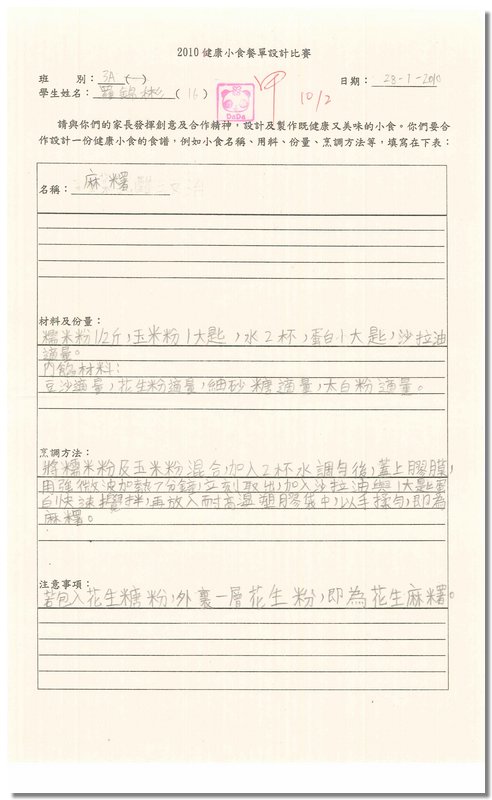 2010 健康小食餐單設計比賽
班 別：3A (一) 日期：28-1-2010
學生姓名：羅錦彬 (16) 甲 10/2
DaDa
請與你們的家長發揮創意及合作精神，設計及製作既健康又美味的小食。你們要合
作設計一份健康小食的食譜，例如小食名稱、用料、份量、烹調方法等，填寫在下表：
名稱：麻糬
材料及份量：
糯米粉1/2斤，玉米粉1大匙，水2杯，蛋白1大匙，沙拉油
適量。
內餡材料：
豆沙適量，花生粉適量，細砂糖適量，太白粉適量。
烹調方法：
將糯米粉及玉米粉混合，加入2杯水調勻後，蓋上膠膜，
用強微波加熱7分鐘，立刻取出，加入沙拉油與1大匙蛋
白快速攪拌，再放入耐高溫塑膠袋中，以手揉勻，即為
麻糬。
注意事項：
若包入花生糖粉，外裹一層花生粉，即為花生麻糬。